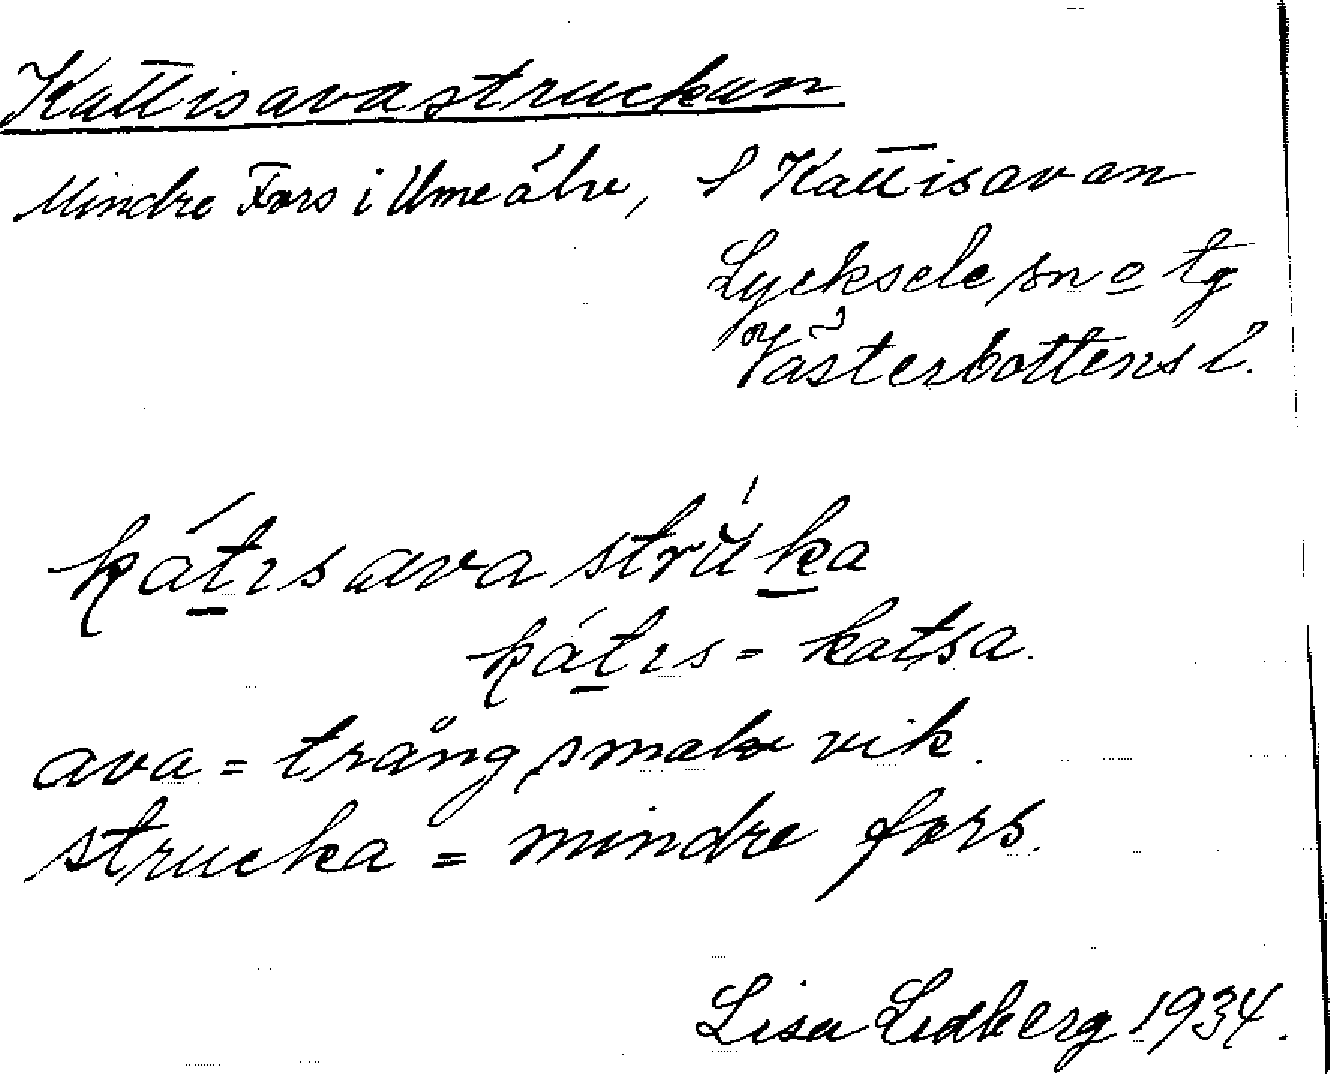 Kattisavastruckan
Mindre Fors i Umeälv, S Kattisavan
Lycksele sn o tg
Västerbottens l.
kát̠ɩsava strú̆k̠a
kát̠ɩs = katsa.
ava = trång smal vik.
strucka = mindre fors.
Lisa Lidberg 1934.